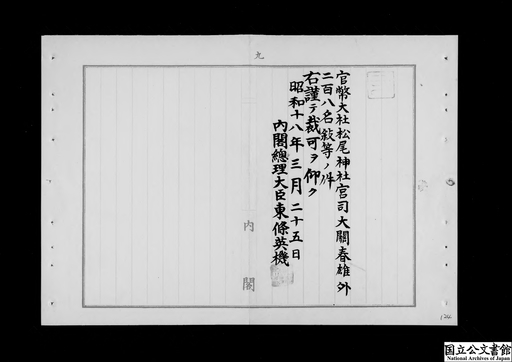 九
官幣大社松尾神社宮司大關春雄外
二百八名敍等ノ件
右謹テ裁可ヲ仰ク
昭和十八年三月二十五日
內閣總理大臣東條英機
內閣
124
国立公文書館
National Archives of Japan